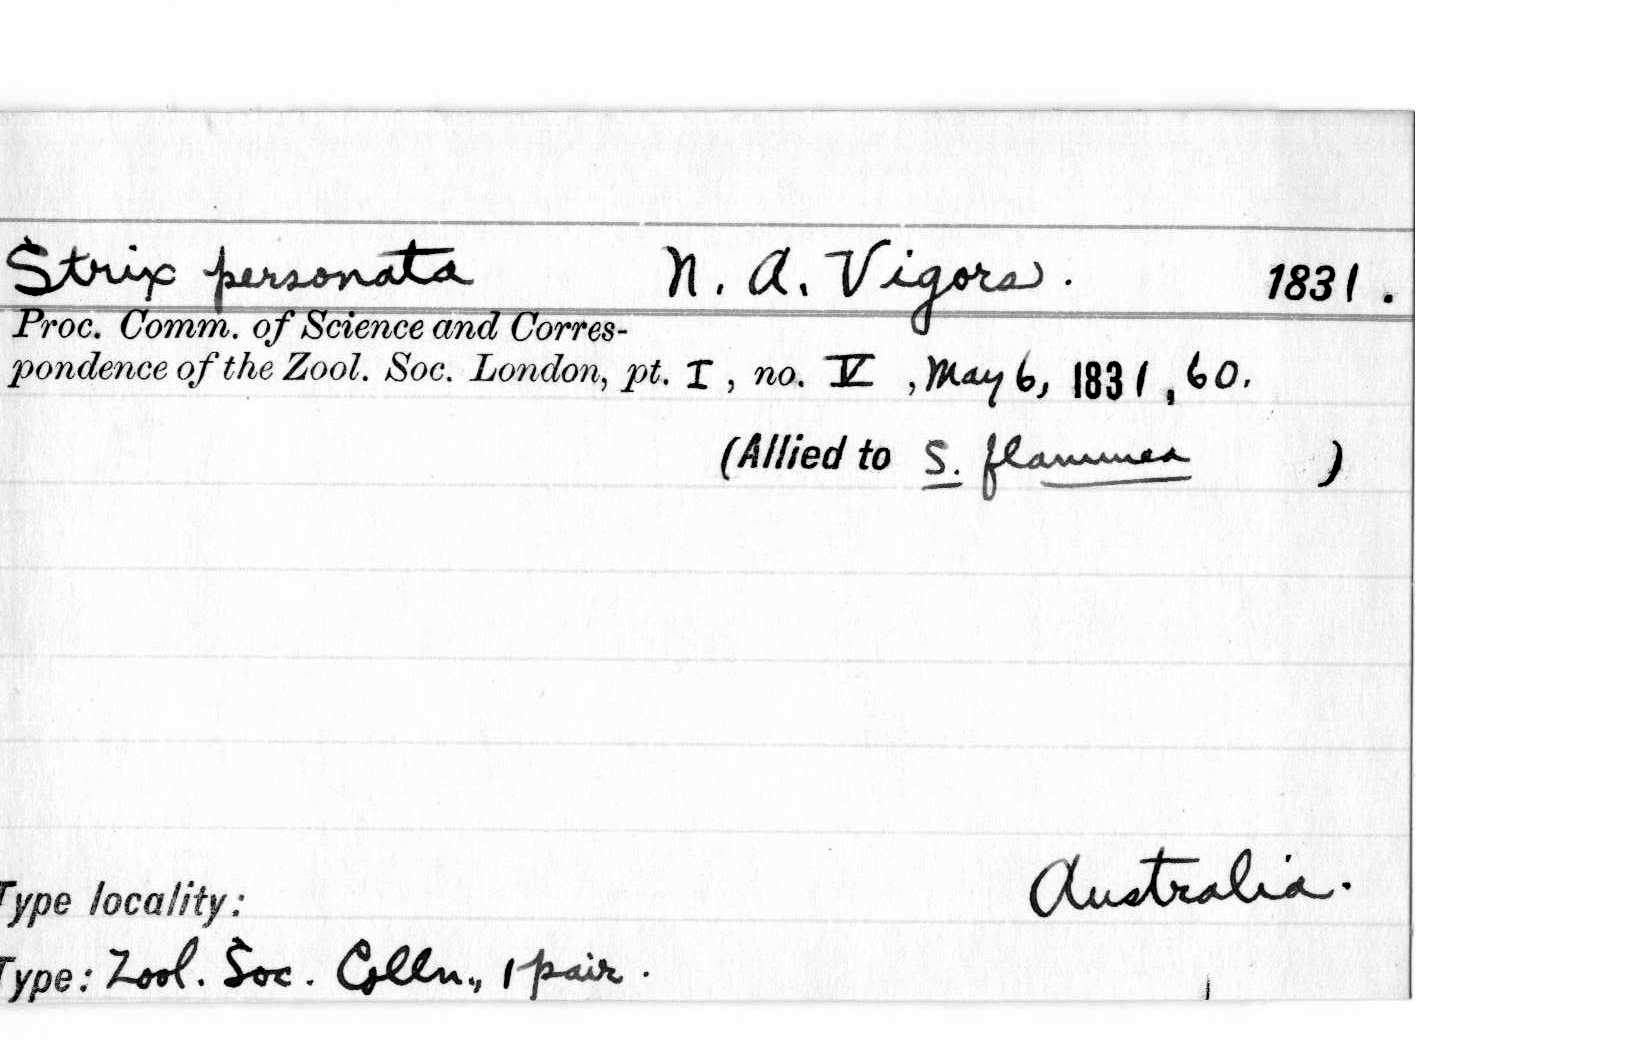 Strix personata N. A. Vigors. 1831.
Proc. Comm. of Science and Corres-
pondence of the Zool. Soc. London, pt. I, no. V, May 6, 1831, 60.
(Allied to S. flammea )
Type locality: Australia.
Type: Zool. Soc. Colln., 1 pair.